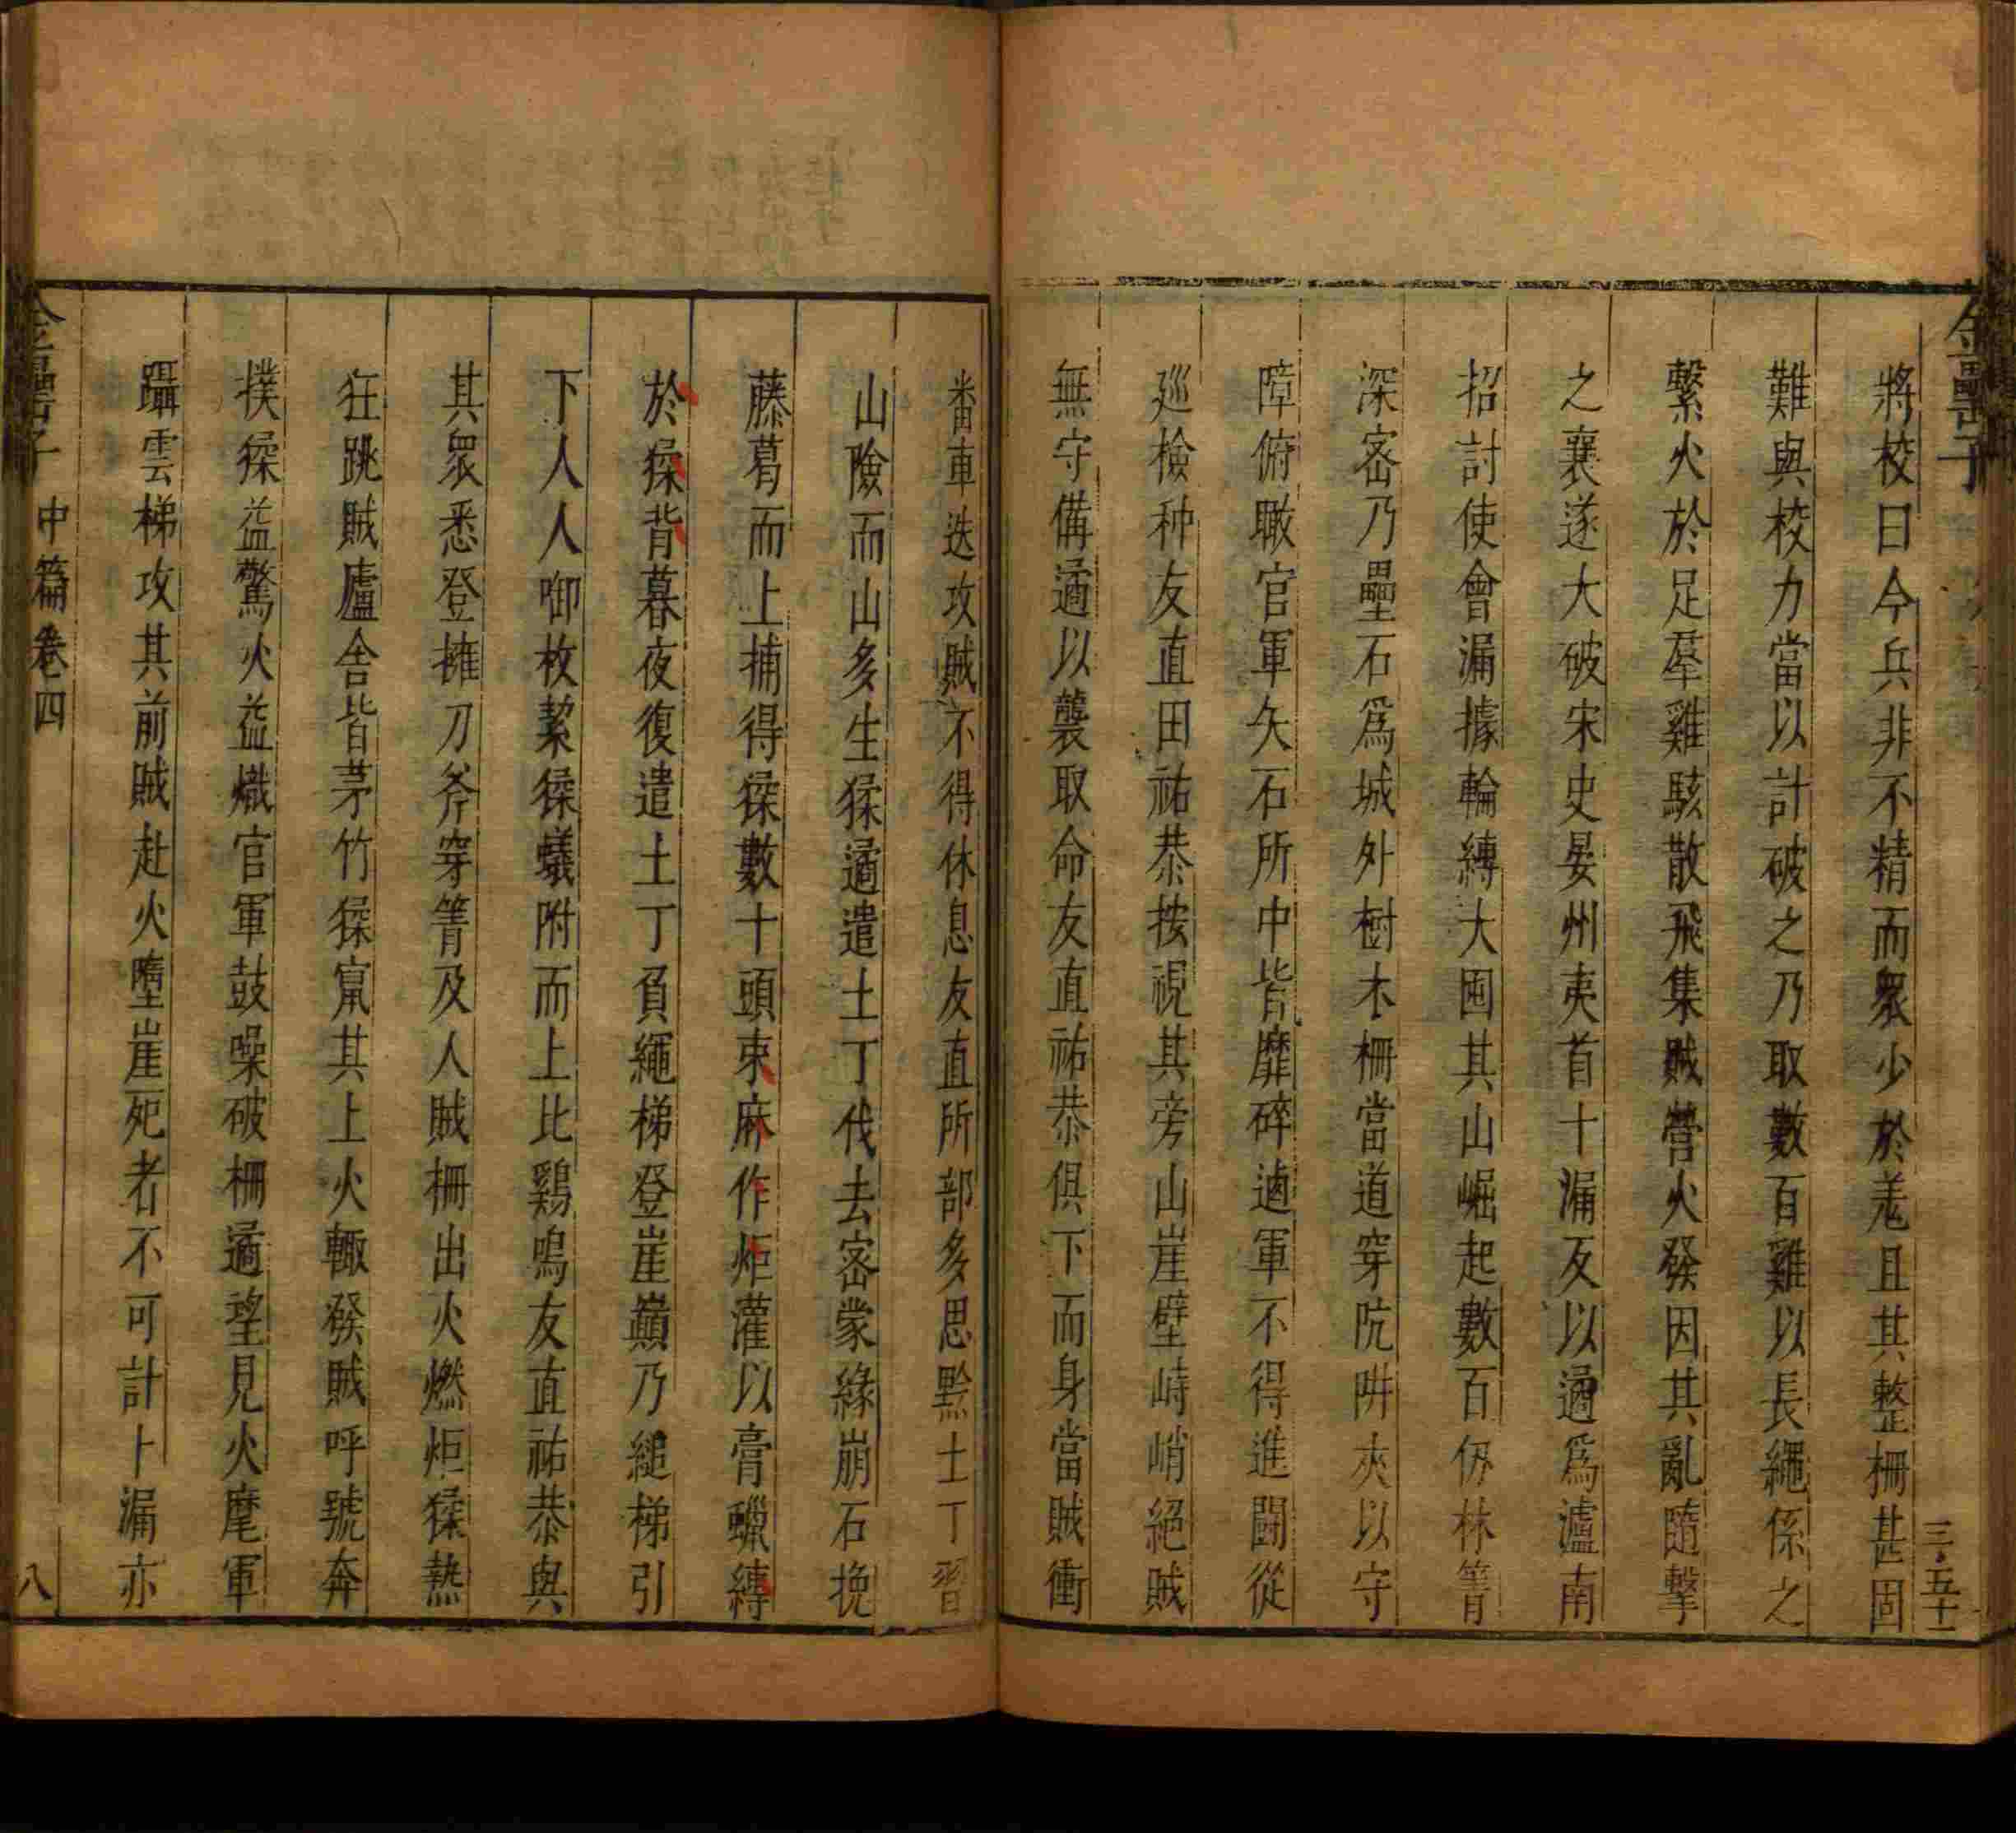 金罍子
三五十一
將校曰今兵非不精而衆少於羌且其整柵甚固
難與校力當以計破之乃取數百雞以長繩係之
繫火於足羣雞駭散飛集賊營火發因其亂隨擊
之襄遂大破宋史晏州夷酋十漏反以遹爲瀘南
招討使會漏據輪縳大囤其山崛起數百仞林箐
深宻乃壘石爲城外樹木柵當道穿阬阱夾以守
障俯瞰官軍矢石所中皆靡碎遹軍不得進鬪從
廵檢种友直田祐恭按視其旁山崖壁峙峭絕賊
無守備遹以襲取命友直祐恭俱下而身當賊衝
番車迭攻賊不得休息友直所部多思黔土丁習
山險而山多生猱遹遣土丁伐去宻蒙緣崩石挽
藤葛而上捕得猱數十頭束麻作炬灌以膏蠟縳
於猱背暮夜復遣土丁負繩梯登崖巔乃縋梯引
下人人啣枚絜猱蟻附而上比鷄鳴友直祐恭與
其衆悉登擁刀斧穿箐及人賊柵出火燃炬猱熱
狂跳賊廬舍皆茅竹猱竄其上火輙發賊呼號奔
撲猱益驚火益熾官軍鼓噪破柵遹望見火麾軍
躡雲梯攻其前賊赴火墮崖死者不可計卜漏亦
金罍子 中篇卷四 八